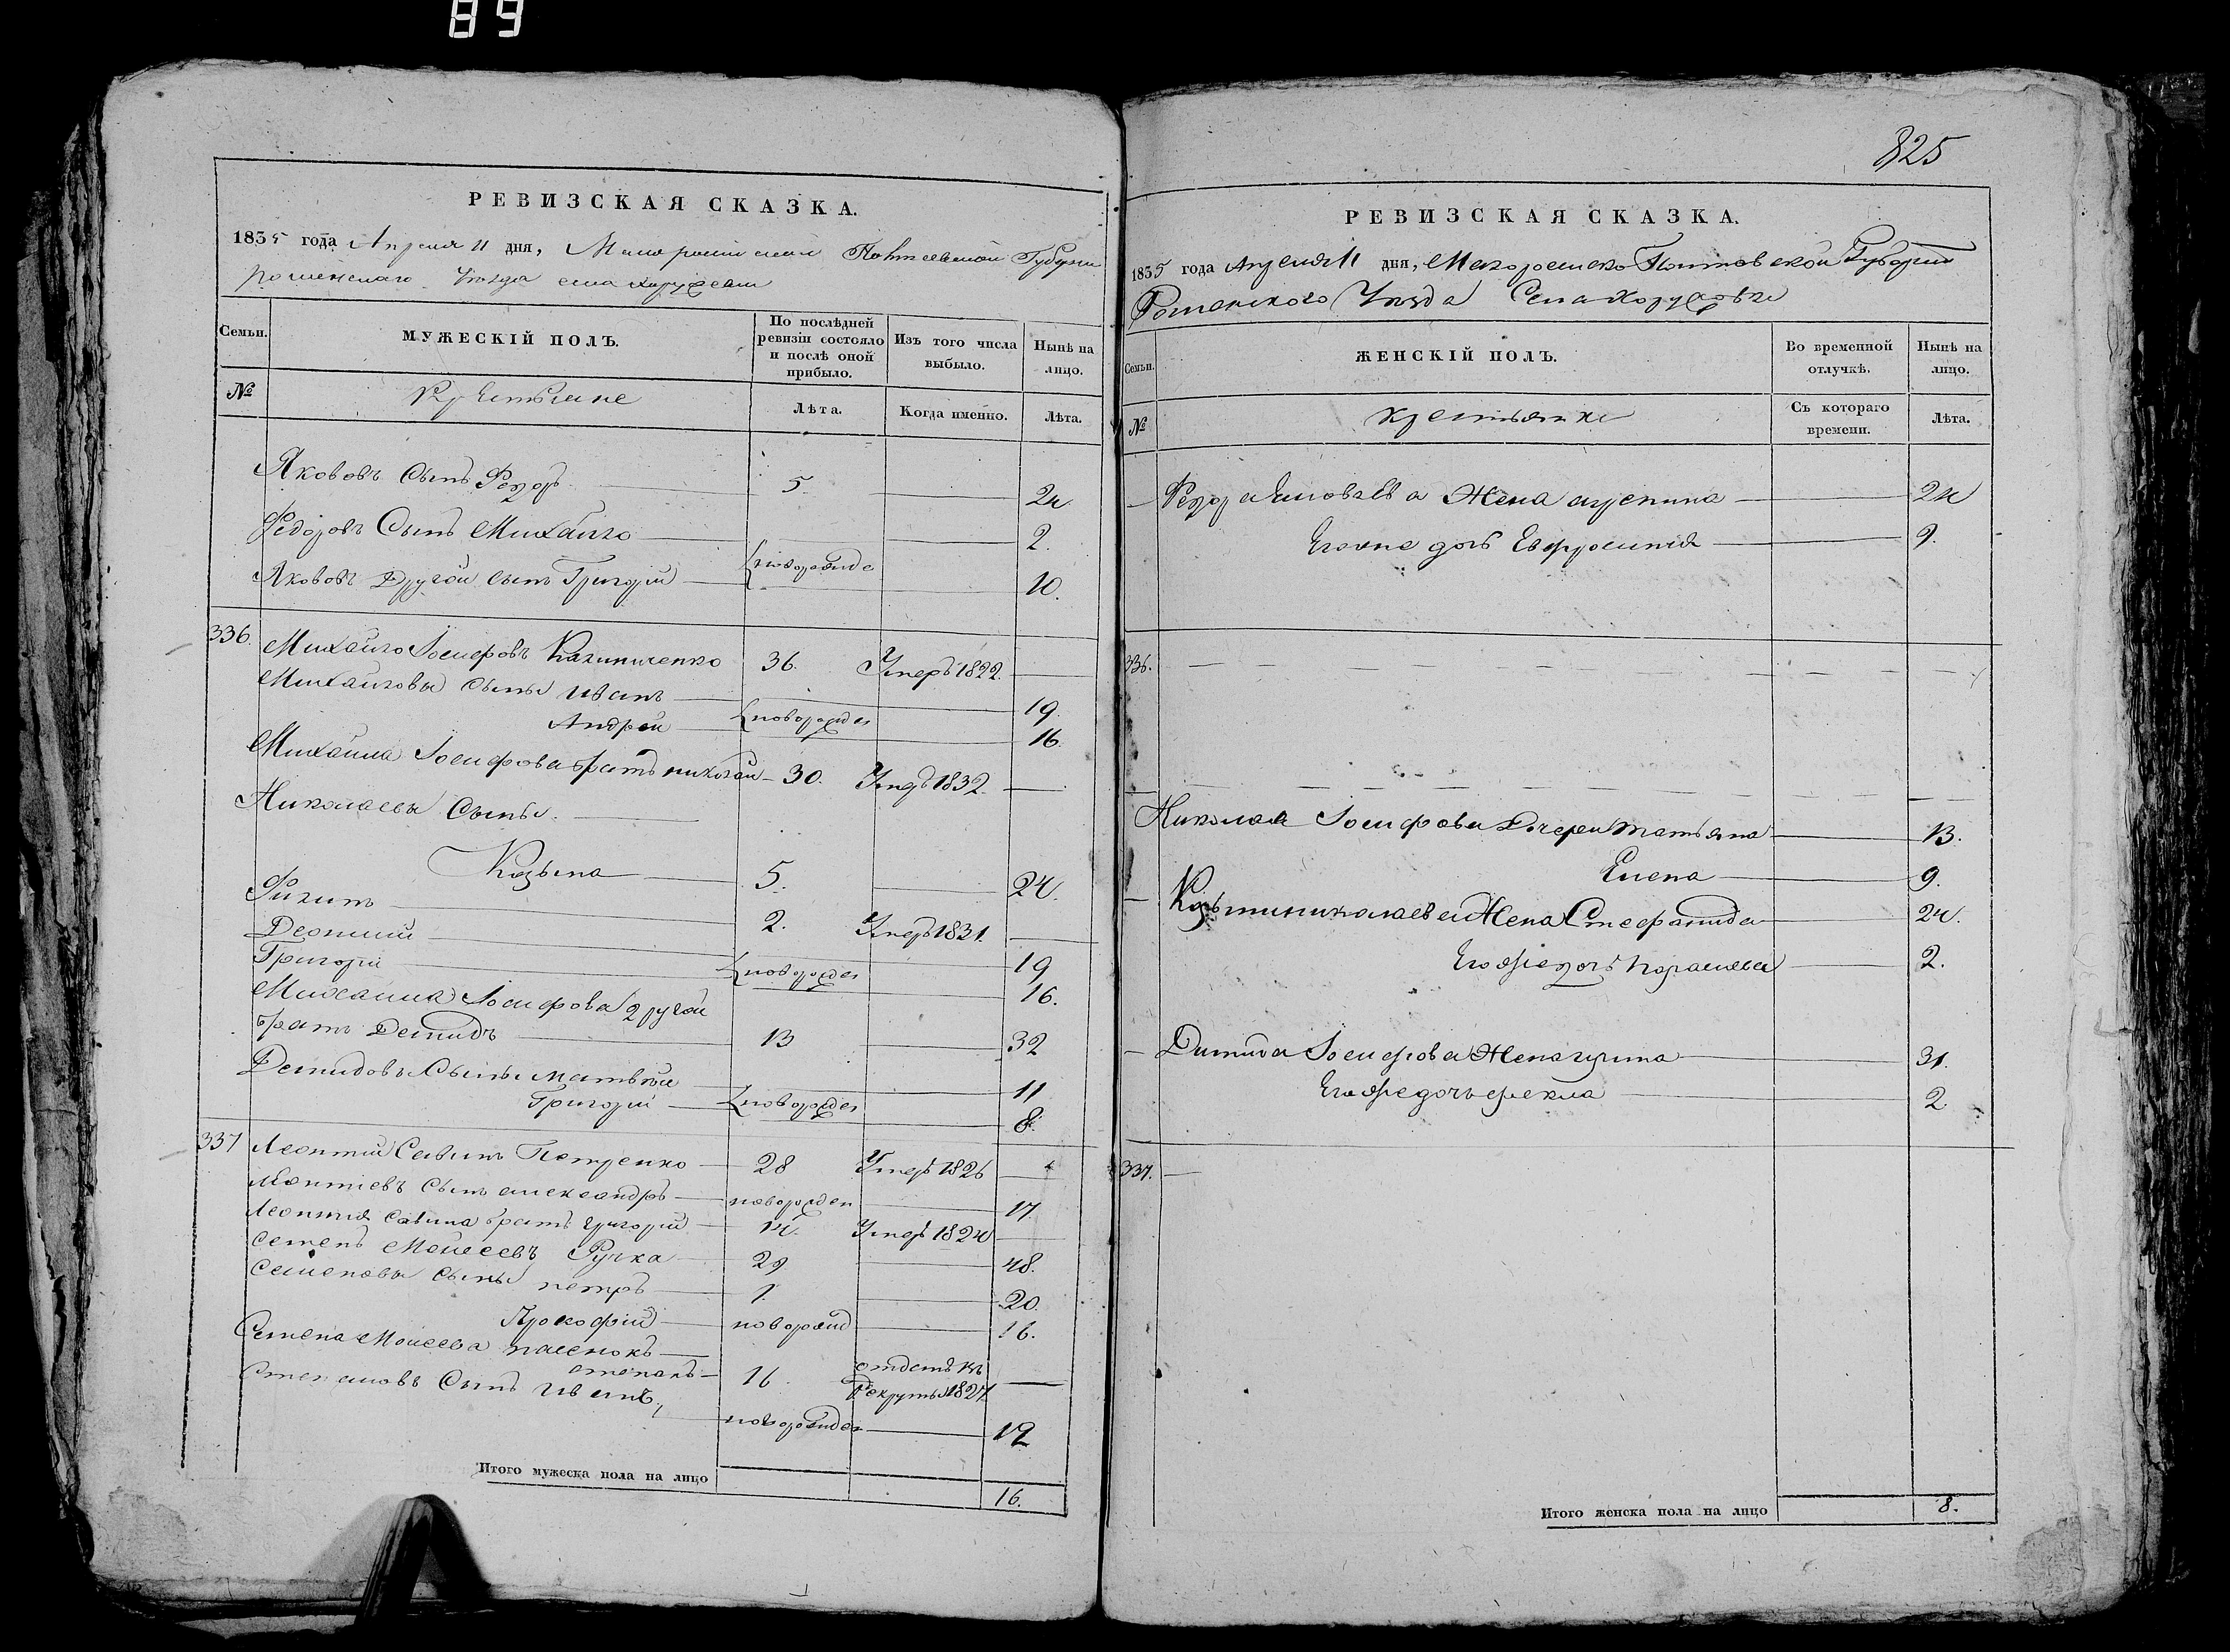 89
РЕВИЗСКАЯ СКАЗКА.
1835 года Апреля 11 дня, Малороссийской Полтавской Губернии
роменского Уезда села хоружевки
Семьи.
МУЖЕСКІЙ ПОЛЪ.
По послѣдней ревизіи состояло и послѣ оной прибыло.
Изъ того числа выбыло.
Нынѣ на лицо.
№
Крестьяне
Лѣта.
Когда именно.
Лѣта.
Яковъ Сынъ Федоръ 5. 24
Федоровъ Сынъ Михайло 2.
новорожде
Яковъ Другой сынъ Григорій 10.
336. Михайло Іосифовъ Калиниченко 36. Умеръ 1822.
Михайловы Сыны иванъ 19.
новорожден
Андрей 16.
Михайла Іосифова братъ николай 30. Умеръ 1832.
Николаевы Сыны.
Козьма 5. 24.
Филипъ 2. Умеръ 1831.
Деонисій 19
новорожден
Григорій 16.
Михайла Іосифова другой
братъ Демидъ 13 32
Демидовы Сыны матвѣй 11
Григорій новорожден 8.
337 Леонтій Савинъ Петренко 28 Умеръ 1826
Леонтіевъ сынъ александръ новорожден 17.
Леонтія Савина братъ григорій 14. Умеръ 1824
Семенъ Моисеевъ Ручка 29 48.
Семеновы Сыны петръ 1. 20.
Прокофій новорожд 16.
Семена Моисеева пасенокъ
степанъ 16. отдатъ въ
Рекруты 1827
Степановъ Сынъ Иванъ, новорожден 12
Итого мужеска пола на лицо 16.
825
РЕВИЗСКАЯ СКАЗКА.
1835 года Апреля 11 дня, Малоросийско Полтавской Губерніи
Роменского Уѣзда Села Хоружовки
Семьи.
ЖЕНСКІЙ ПОЛЪ.
Во временной отлучкѣ.
Нынѣ на лицо.
№
крестьянки
Съ котораго времени.
Лѣта.
Федора Яковлева Жена агрепина 24
Егоже дочь Евфросинія 9.
336.
Николая Іосифова Дочери татьяна 13.
Елена 9.
Козьми николаева Жена Стефанида 24.
Егоже дочь парасковья 2.
Димида Іосифова Жена ирина 31.
Егоже дочь фекла 2.
337.
Итого женска пола на лицо 8.